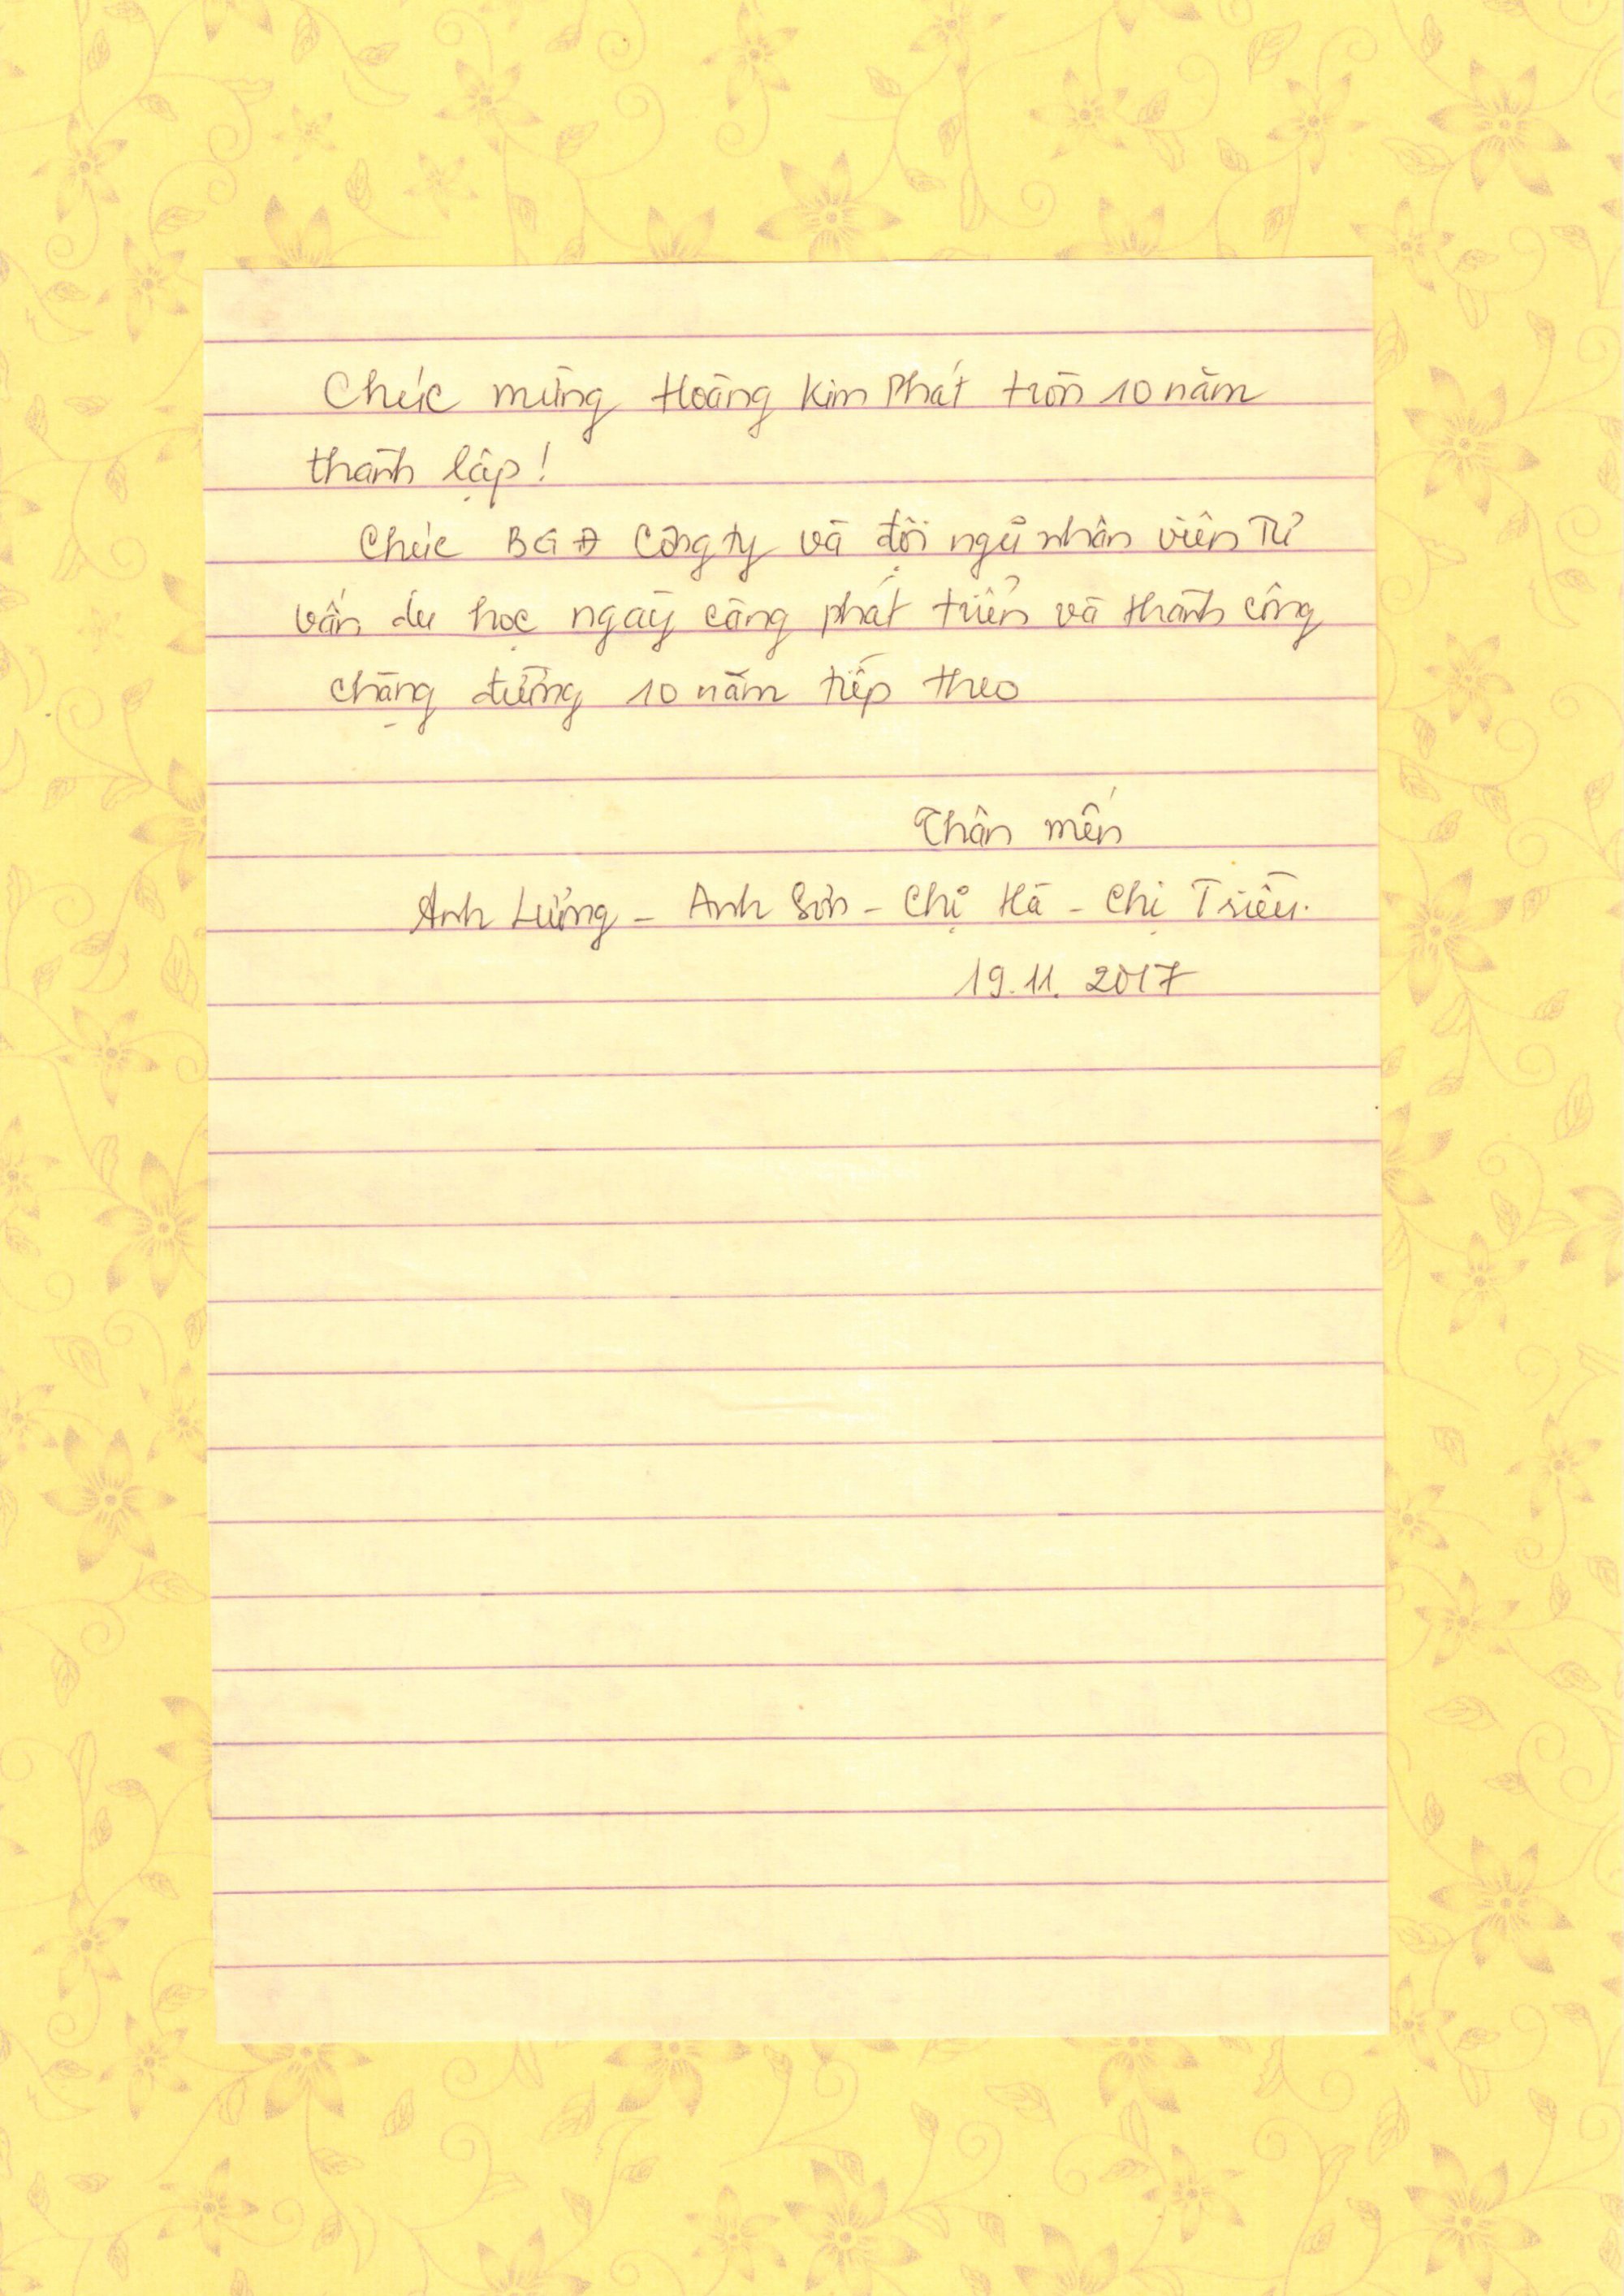 Chúc mừng Hoàng Kim Phát tròn 10 năm
thành lập!
Chúc BGĐ Công ty và đội ngũ nhân viên Tư
vấn du học ngày càng phát triển và thành công
chặng đường 10 năm tiếp theo
Thân mến
Anh Lương - Anh Sơn - Chị Hà - Chị Triều.
19.11.2017